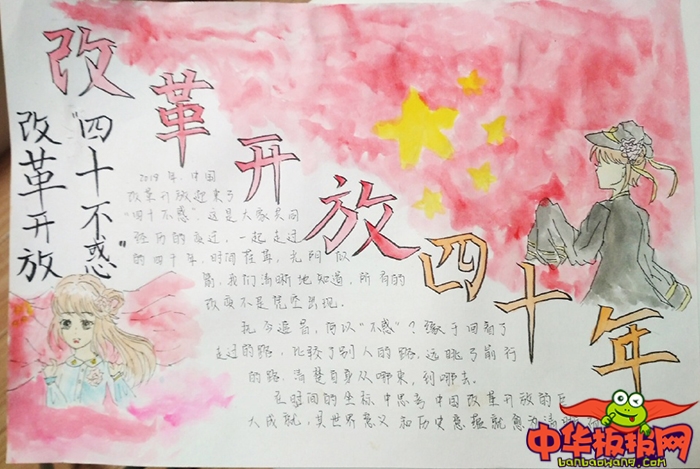 改革开放四十年
改革开放
"四十不惑"
2018年,中国
改革开放迎来了
"四十不惑",这是大家共同
经历的变迁,一起走过
的四十年,时间在
前,我们清晰地知道,所有的
改变不是凭空出现。
抚今追昔,何以"不惑"?缘于回看了
走过的路,比较了别人的路,远眺了前行
的路,清楚自身从哪来,到哪去。
在时间的坐标中思考中国改革开放的巨
大成就,其世界意义和历史意蕴就愈为清晰
中华板报网
banbaowang.com